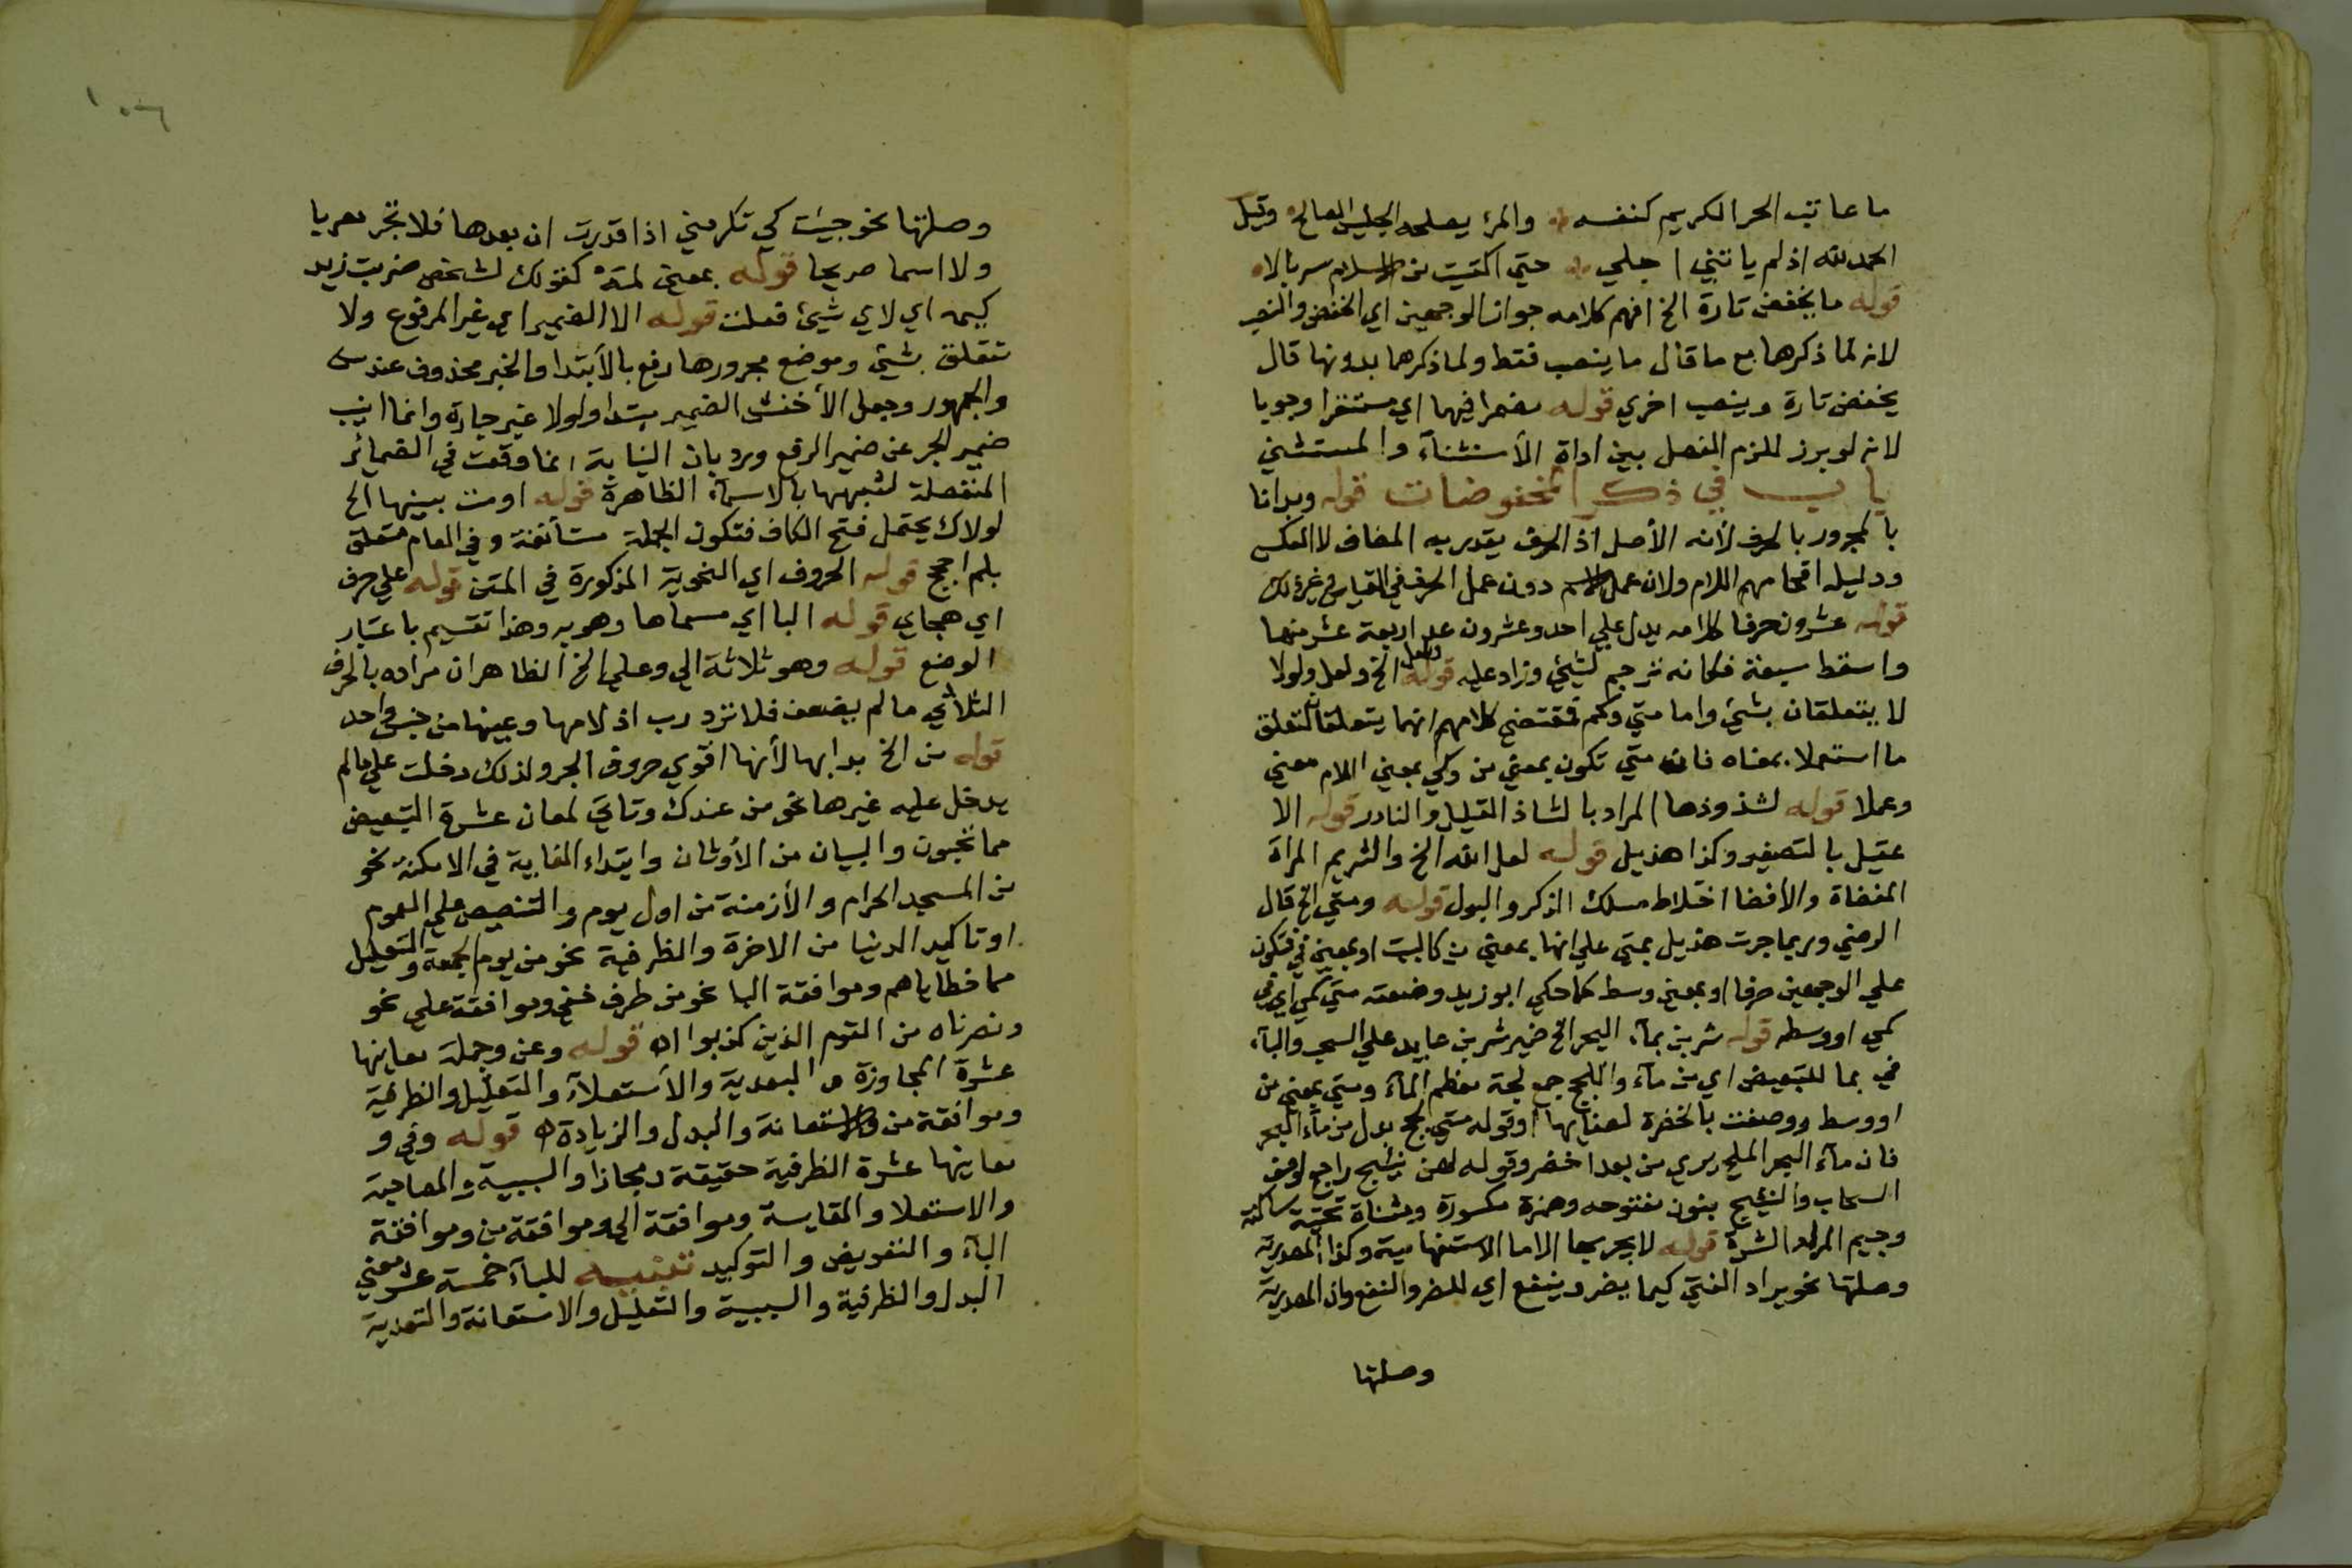 ما عاتب الحر الكريم كنفسه والمرء يصلحه الجليس الصالح وقيل
الحمد لله اذ لم ياتني اجلي حتي اكتسيت من الاسلام سربالا
قوله ما يخفض تارة الخ افهم كلامه جواز الوجهين اي الخفض والنصب
لانه لما ذكرها مع ما قال ما ينصب فقط ولما ذكرهما بدونها قال
يخفض تارة وينصب اخري قوله مضمرا فيهما اي مستترا وجوبا
لانه لو برز للزم الفصل بين اداة الأستثناء والمستثني
باب في ذكر المخفوضات قوله وبدانا
بالمجرور بالحرف لأنه الأصل اذ الحرف يقدر به المضاف لا العكس
ودليله اقحامهم اللام ولان عمل الاسم دون عمل الحرف في القياس وغير ذلك
قوله عشرون حرفا كلامه يدل علي احد وعشرون عد اربعة عشر منها
واسقط سبعة فكانه ترجم لشيئ وزاد عليه قوله ولعل الخ ولعل ولولا
لا يتعلقان بشيئ واما متي وكي فمقتضي كلامهم انهما يتعلقان لتعلق
ما استعملا بمعناه فان متي تكون بمعني من وكي بمعني اللام معني
وعملا قوله لشذوذها المراد بالشاذ القليل والنادر قوله الا
عقيل بالتصغير وكذا هذيل قوله لعل الله الخ والشريم المراة
المفضاة والأفضا اختلاط مسلك الذكر والبول قوله ومتي الخ قال
الرضي وربما جرت هذيل بمتي علي انها بمعني من كالبيت او بمعني في فتكون
علي الوجهين حرفا او بمعني وسط كما حكي ابو زيد وضعته متي كمي اي في
كمي او وسطه قوله شربن بماء البحر الخ ضمير شربن عايد علي السحب والباء
في بما للتبعيض اي من ماء واللجج جمع لجة معظم الماء ومتي بمعني من
او وسط ووصفت بالخضرة لصفائها وقوله متي لجج بدل من ماء البحر
فان ماء البحر الملح يري من بعد اخضر وقوله لهن نئيج راجع لوصف
السحاب والنئيج بنون مفتوحه وهمزة مكسورة ومثناة تحتية ساكنة
وجيم المر السريع قوله لا يجر بها الا ما الاستفهامية وكذا المصدرية
وصلتها نحو يراد الفتي كيما يضر وينفع اي للضر والنفع وان المصدرية
وصلتها
وصلتها نحو جيئت كي تكرمني اذا قدرت ان بعدها فلا تجر معربا
ولا اسما صريحا قوله بمعني لمه كقولك لشخص ضربت زيد
كيمه اي لاي شيئ فعلت قوله الا الضمير اي غير المرفوع ولا
تتعلق بشيئ وموضع مجرورها رفع بالأبتدا والخبر محذوف عند س
والجمهور وجعل الأخفش الضمير مبتدا ولولا غير جارة وانما انيب
ضمير الجر عن ضمير الرفع ورد بان النيابة انما وقعت في الضمائر
المنفصلة لشبهها بالاسماء الظاهرة قوله اومت بعينيها الخ
لولاك يحتمل فتح الكاف فتكون الجملة مستأنفة وفي العام متعلق
بلم احجج قوله الحروف اي النحوية المذكورة في المتن قوله علي حرف
اي هجاي قوله البا اي مسماها وهو به وهذا تقسيم باعتبار
الوضع قوله وهو ثلاثة الي وعلي الخ الظاهر ان مراده بالحرف
الثلاثي ما لم يضعف فلا ترد رب اذ لامها وعينها من جنس واحد
قوله من الخ بدا بها لأنها اقوي حروف الجر ولذلك دخلت علي مالم
يدخل عليه غيرها نحو من عندك وتاتي لمعان عشرة التبعيض
مما تحبون والبيان من الأوثان وابتداء الغاية في الامكنة نحو
من المسجد الحرام والأزمنة من اول يوم والتنصيص علي العموم
او تاكيد الدنيا من الاخرة والظرفية نحو من يوم الجمعة والتعليل
مما خطاياهم وموافقة البا نحو من طرف خفي وموافقة علي نحو
ونصرناه من القوم الذين كذبوا اه قوله وعن وجملة معانيها
عشرة المجاوزة والبعدية والأستعلاء والتعليل والظرفية
وموافقة من والاستعانة والبدل والزيادة اه قوله وفي و
معانيها عشرة الظرفية حقيقة ومجازا والسببية والمصاحبة
والاستعلا والمقايسة وموافقة الي وموافقة من وموافقة
الباء والتعويض والتوكيد تنبيه للباء خمسة عشر معني
البدل والظرفية والسببية والتعليل والاستعانة والتعدية